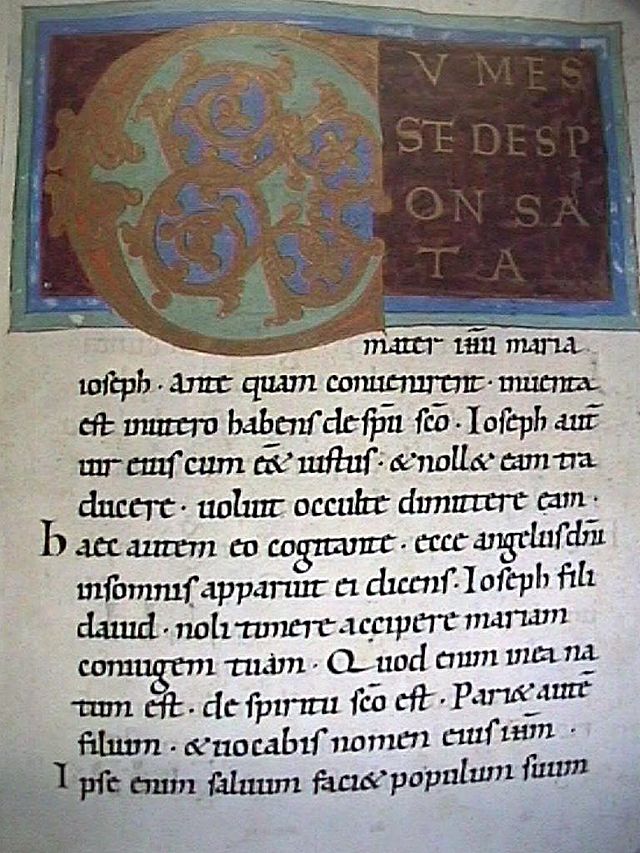 CVM ES
SE DESP
ONSA
TA
mater ih̅u maria
ioseph · Ante quam conuenirent · inuenta
est inutero habens de sp̅u sc̅o · Ioseph aut̅
uir eius cum e̅& iustus · & noll& eam tra
ducere · uoluit occulte dimittere eam ·
haec autem eo cogitante · ecce angelus dn̅i
insomnis apparuit ei dicens · Ioseph fili
dauid · noli timere accipere mariam
coniugem tuam · Quod enim inea na
tum est · de spiritu sc̅o est · Pari& aute̅
filium · & uocabis nomen eius ih̅m ·
Ipse enim saluum faci& populum suum